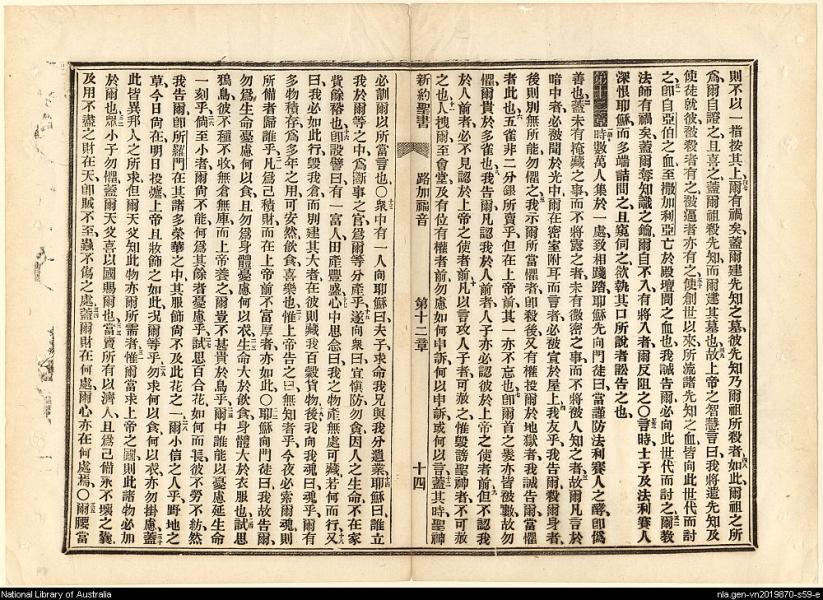 則不以一指按其上、爾有禍矣、蓋爾建先知之墓、彼先知乃爾祖所殺者、如此、爾祖之所
爲、爾自證之、且喜之、蓋爾祖殺先知、而爾建其墓也、故上帝之智慧言曰、我將遣先知及
使徒就彼、彼殺者有之、窘逼者亦有之、使創世以來所流諸先知之血、皆向此世代而討
之、卽自亞伯之血、至撒加利亞亡於殿壇間之血也、我誠告爾、必向此世代而討之、爾教
法師有禍矣、蓋爾奪知識之鑰、爾自不入、有將入者、爾反阻之〇言時、士子及法利賽人
深恨耶穌、而多端詰問之、且窺伺之、欲執其口所說者訟告之也、
第十二章 時數萬人集於一處、致相踐踏、耶穌先向門徒曰、當謹防法利賽人之酵、卽僞
善也、蓋未有掩藏之事、而不將露之者、未有微密之事、而不將彼人知之者、故爾凡言於
暗中者、必彼聞於光中、爾在密室附耳而言者、必彼宣於屋上、我友乎、我告爾、殺爾身者、
後則別無所能、勿懼之、我示爾所當懼者、卽殺後又有權投爾於地獄者、我誠告爾、當懼
者此也、五雀非二分銀所賣乎、但在上帝前、其一亦不忘也、卽爾首之髮、亦皆彼數、故勿
懼、爾貴於多雀也、我告爾、凡認我於人前者、人子亦必認彼於上帝之使者前、但不認我
於人前者、必不見認於上帝之使者前、凡以言攻人子者、可赦之、惟毀謗聖神者、不可赦
之也、人拽爾至會堂、及有位有權者前、勿慮如何申訴、何以申訴、或何以言、蓋其時聖神
新約聖書 路加福音 第十二章 十四
必訓爾以所當言也〇衆中有一人向耶穌曰、夫子、求命我兄與我分遺業、耶穌曰、誰立
我於爾等之中、爲斷事之官、爲爾等分產乎、遂向衆曰、宜愼防勿貪、因人之生命不在家
貲餘裕也、卽設譬曰、有一富人、田產豐盛、心中思念曰、我之物產無處可藏、若何而行、又
曰、我必如此行、毀我倉而別建其大者、在彼則藏我百穀貨物、後我向我魂曰、魂乎、爾有
多物積存、爲多年之用、可安然飲食喜樂也、惟上帝告之曰、無知者乎、今夜必索爾魂、則
所備者歸誰乎、凡爲己積財、而在上帝前不富厚者、亦如此〇耶穌向門徒曰、我故告爾、
勿爲生命憂慮何以食、且勿爲身體憂慮何以衣、生命大於飲食、身體大於衣服也、試思
鴉鳥、彼不種不收、無倉無庫、而上帝養之、爾豈不甚貴於鳥乎、爾中誰能以憂慮延生命
一刻乎、倘至小者、爾尙不能、何爲其餘者憂慮乎、試思百合花、如何而長、彼不勞不紡、然
我告爾、卽所羅門在其諸多榮華之中、其服飾尙不及此花之一、爾小信之人乎、野地之
草、今日尙在、明日投爐、上帝且妝飾之如此、況爾等乎、勿求何以食、何以衣、亦勿掛慮、蓋
此皆異邦人之所求、但爾天父知此物亦爾所需者、惟爾當求上帝之國、則此諸物必加
於爾也、衆小子勿懼、蓋爾天父喜以國賜爾也、當賣所有以濟人、且爲己備永不壞之囊、
及用不盡之財在天、卽賊不至、蟲不傷之處、蓋爾財在何處、爾心亦在何處焉〇爾腰當
National Library of Australia
nla.gen-vn2019870-s59-e